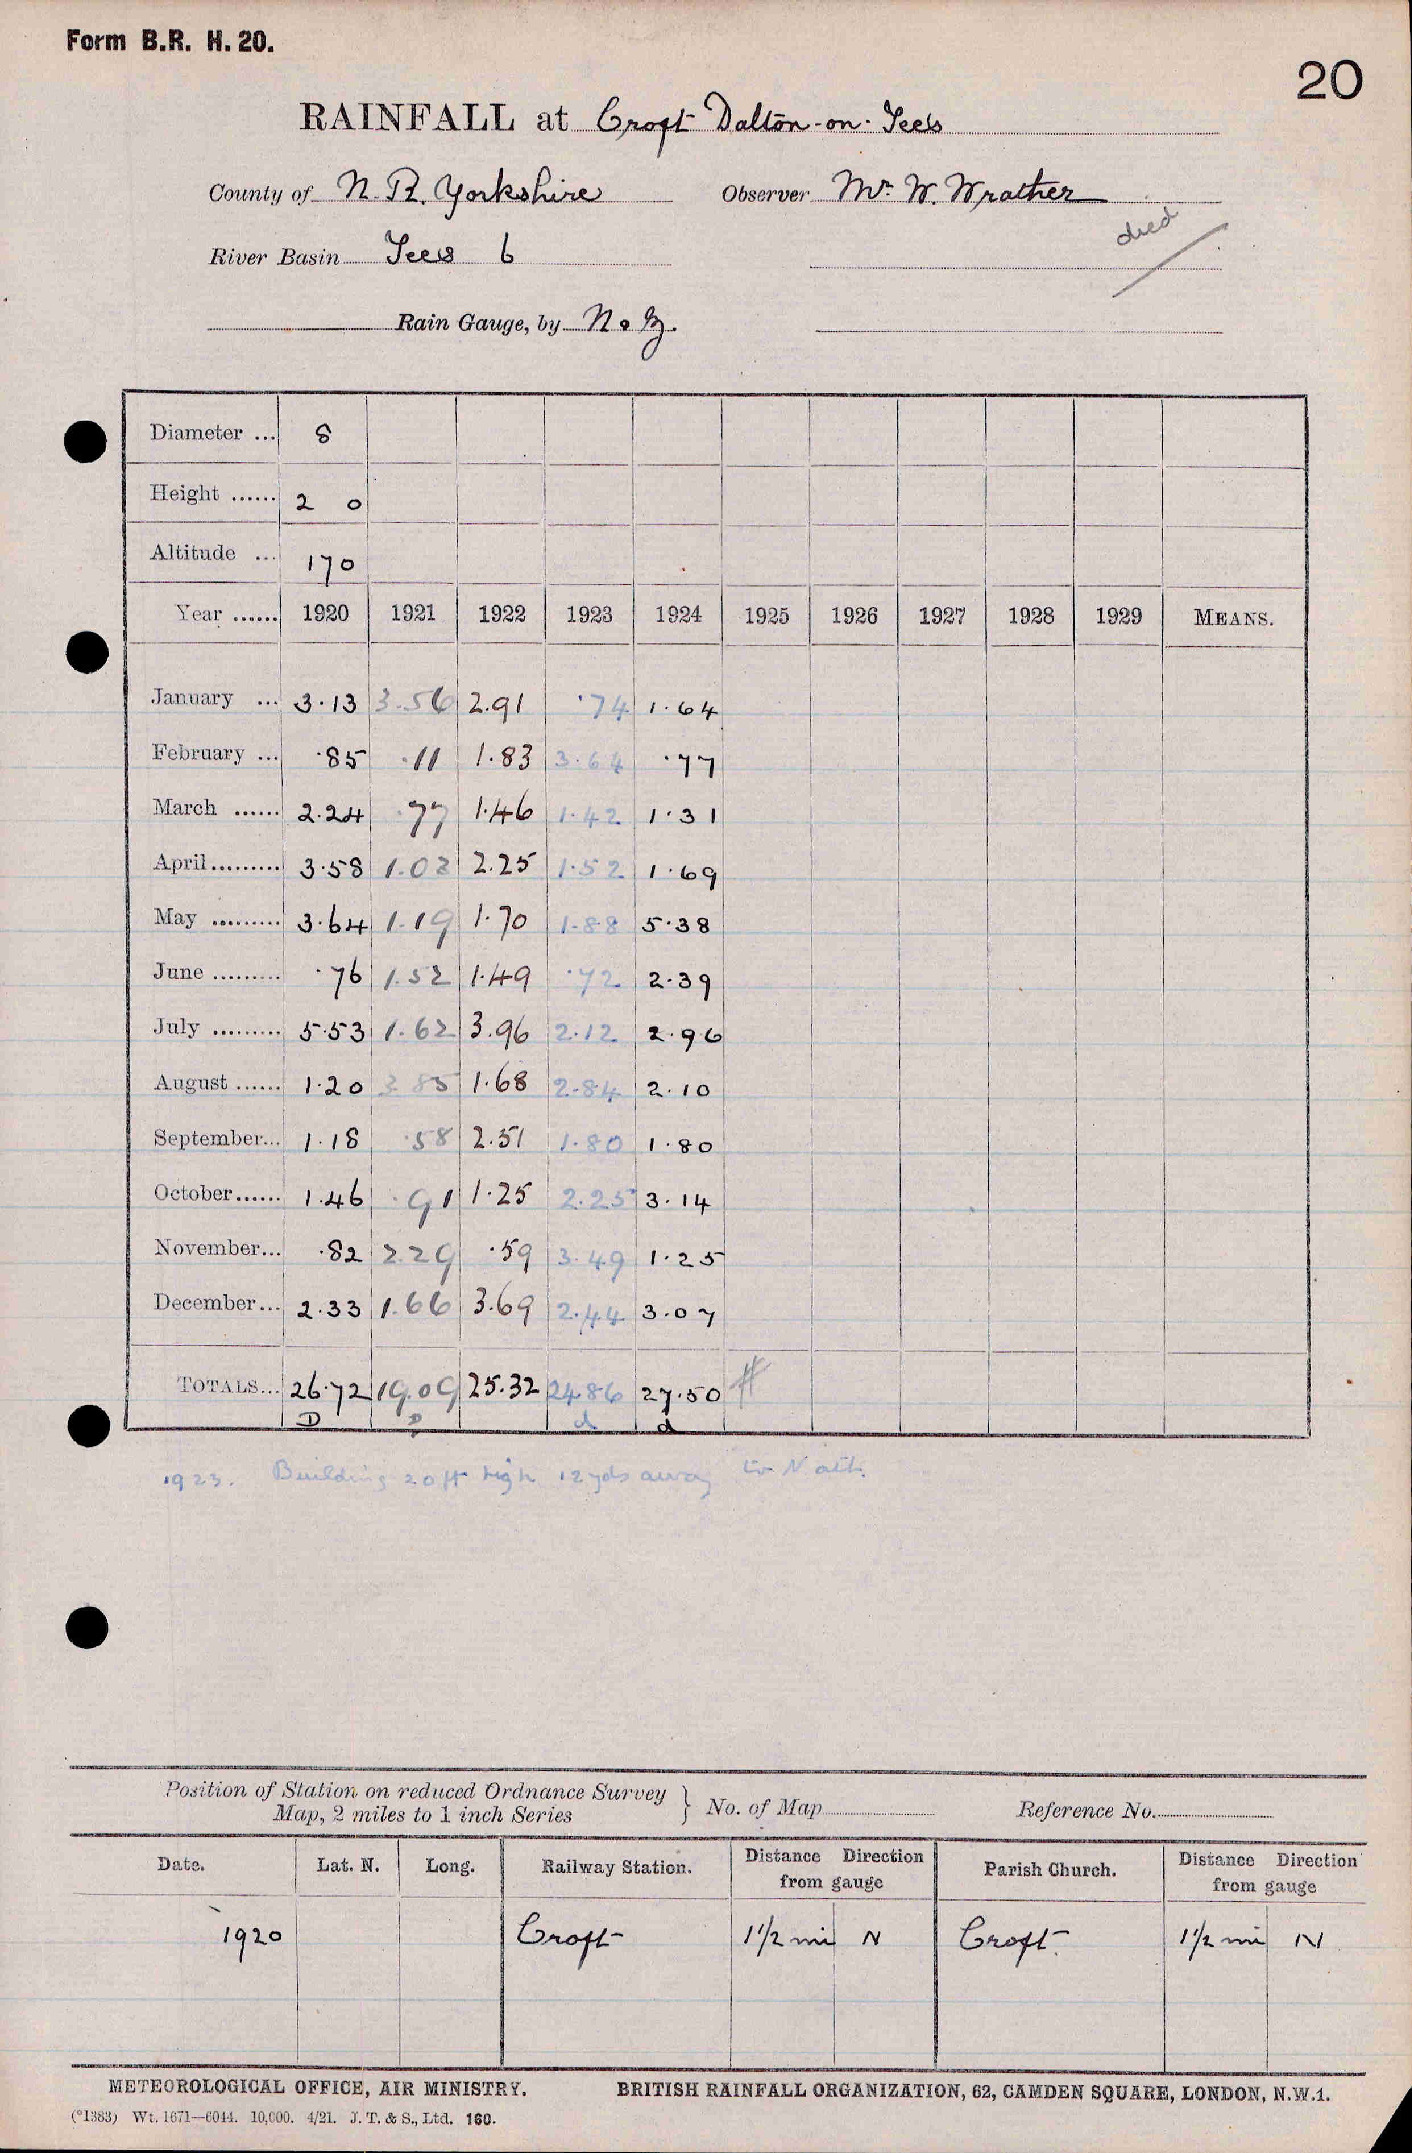 Form B.R. H. 20.
20
RAINFALL at Croft Dalton-on-Tees
County of N. R. Yorkshire Observer Mr. W. Wrather
died
River Basin Tees 6
Rain Gauge, by N & Z.
Diameter ... 8
Height ...... 2 0
Altitude ... 170
Year ...... 1920 1921 1922 1923 1924 1925 1926 1927 1928 1929 MEANS.
January ... 3.13 3.56 2.91 .74 1.64
February ... .85 .11 1.83 3.64 .77
March ...... 2.24 .77 1.46 1.42 1.31
April ......... 3.58 1.03 2.25 1.52 1.69
May ......... 3.64 1.19 1.70 1.88 5.38
June ......... .76 1.52 1.49 .72 2.39
July ......... 5.53 1.62 3.96 2.12 2.96
August ...... 1.20 3.85 1.68 2.84 2.10
September... 1.18 .58 2.51 1.80 1.80
October...... 1.46 .91 1.25 2.25 3.14
November... .82 2.29 .59 3.49 1.25
December... 2.33 1.66 3.69 2.44 3.07
TOTALS... 26.72 19.09 25.32 24.86 27.50 #
D D d d
1923. Building 20 ft high 12 yds away to N alt.
Position of Station on reduced Ordnance Survey
Map, 2 miles to 1 inch Series } No. of Map Reference No.
Date. Lat. N. Long. Railway Station. Distance Direction from gauge Parish Church. Distance Direction from gauge
1920 Croft 1 1/2 mi N Croft. 1 1/2 mi N
METEOROLOGICAL OFFICE, AIR MINISTRY. BRITISH RAINFALL ORGANIZATION, 62, CAMDEN SQUARE, LONDON, N.W.1.
(°1383) Wt. 1671—6044. 10,000. 4/21. J. T. & S., Ltd. 160.